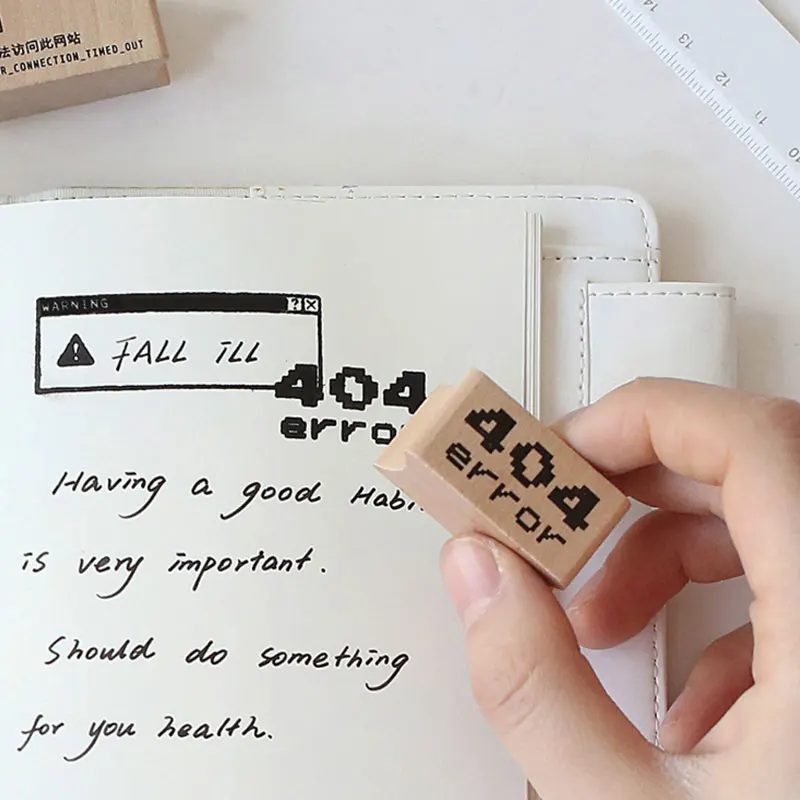 法访问此网站
R_CONNECTION_TIMED_OUT
14
13
12
11
10
WARNING ? X
! FALL ILL
404
erro
404
error
Having a good Habi
is very important.
Should do something
for you health.